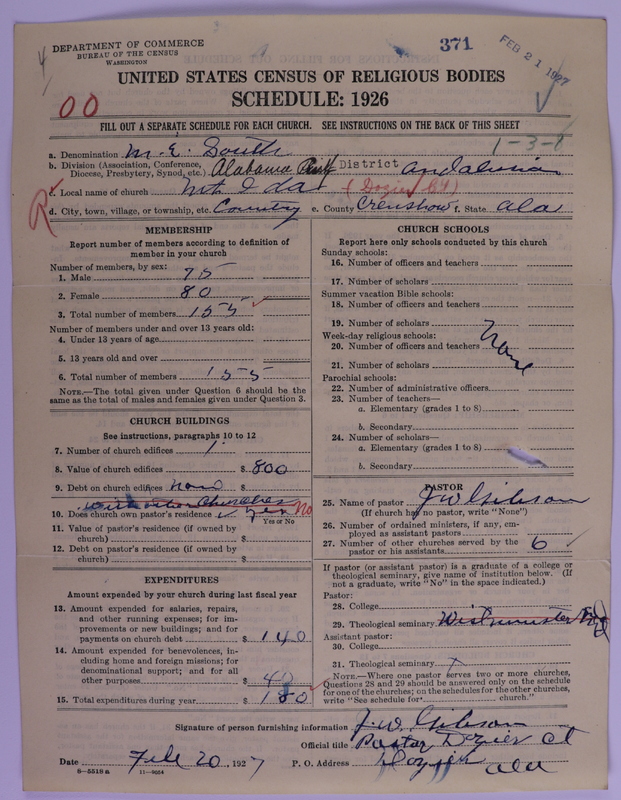 DEPARTMENT OF COMMERCE
BUREAU OF THE CENSUS
WASHINGTON
371
FEB 21 1927
UNITED STATES CENSUS OF RELIGIOUS BODIES
SCHEDULE: 1926
00
FILL OUT A SEPARATE SCHEDULE FOR EACH CHURCH. SEE INSTRUCTIONS ON THE BACK OF THIS SHEET
1-3-8
a. Denomination M. E. South
b. Division (Association, Conference, Diocese, Presbytery, Synod, etc.) Alabama District Andalusia
c. Local name of church Mt Ida (Dozier Ct)
R
d. City, town, village, or township, etc. Country e. County Crenshow f. State Ala
MEMBERSHIP
Report number of members according to definition of
member in your church
Number of members, by sex:
1. Male 75
2. Female 80
3. Total number of members 155
Number of members under and over 13 years old:
4. Under 13 years of age
5. 13 years old and over
6. Total number of members 155
NOTE.—The total given under Question 6 should be the
same as the total of males and females given under Question 3.
CHURCH BUILDINGS
See instructions, paragraphs 10 to 12
7. Number of church edifices 1
8. Value of church edifices $ 800
9. Debt on church edifices None
with other Churches
10. Does church own pastor's residence yes No
Yes or No
11. Value of pastor's residence (if owned by
church) $
12. Debt on pastor's residence (if owned by
church) $
EXPENDITURES
Amount expended by your church during last fiscal year
13. Amount expended for salaries, repairs,
and other running expenses; for im-
provements or new buildings; and for
payments on church debt $ 140
14. Amount expended for benevolences, in-
cluding home and foreign missions; for
denominational support; and for all
other purposes $ 40
15. Total expenditures during year $ 180
CHURCH SCHOOLS
Report here only schools conducted by this church
Sunday schools:
16. Number of officers and teachers
17. Number of scholars
Summer vacation Bible schools:
18. Number of officers and teachers
19. Number of scholars
Week-day religious schools:
20. Number of officers and teachers
None
21. Number of scholars
Parochial schools:
22. Number of administrative officers
23. Number of teachers—
a. Elementary (grades 1 to 8)
b. Secondary
24. Number of scholars—
a. Elementary (grades 1 to 8)
b. Secondary
PASTOR
25. Name of pastor J W Gibson
(If church has no pastor, write "None")
26. Number of ordained ministers, if any, em-
ployed as assistant pastors
27. Number of other churches served by the
pastor or his assistants 6
If pastor (or assistant pastor) is a graduate of a college or
theological seminary, give name of institution below. (If
not a graduate, write "No" in the space indicated.)
Pastor:
28. College
29. Theological seminary Westminster
Assistant pastor:
30. College
31. Theological seminary
NOTE.—Where one pastor serves two or more churches,
Questions 28 and 29 should be answered only on the schedule
for one of the churches; on the schedules for the other churches,
write "See schedule for church."
Signature of person furnishing information J. W. Gibson
Official title Pastor Dozier Ct
Date Feb 20, 1927 P. O. Address Dozier Ala
8-5518 a 11-9054